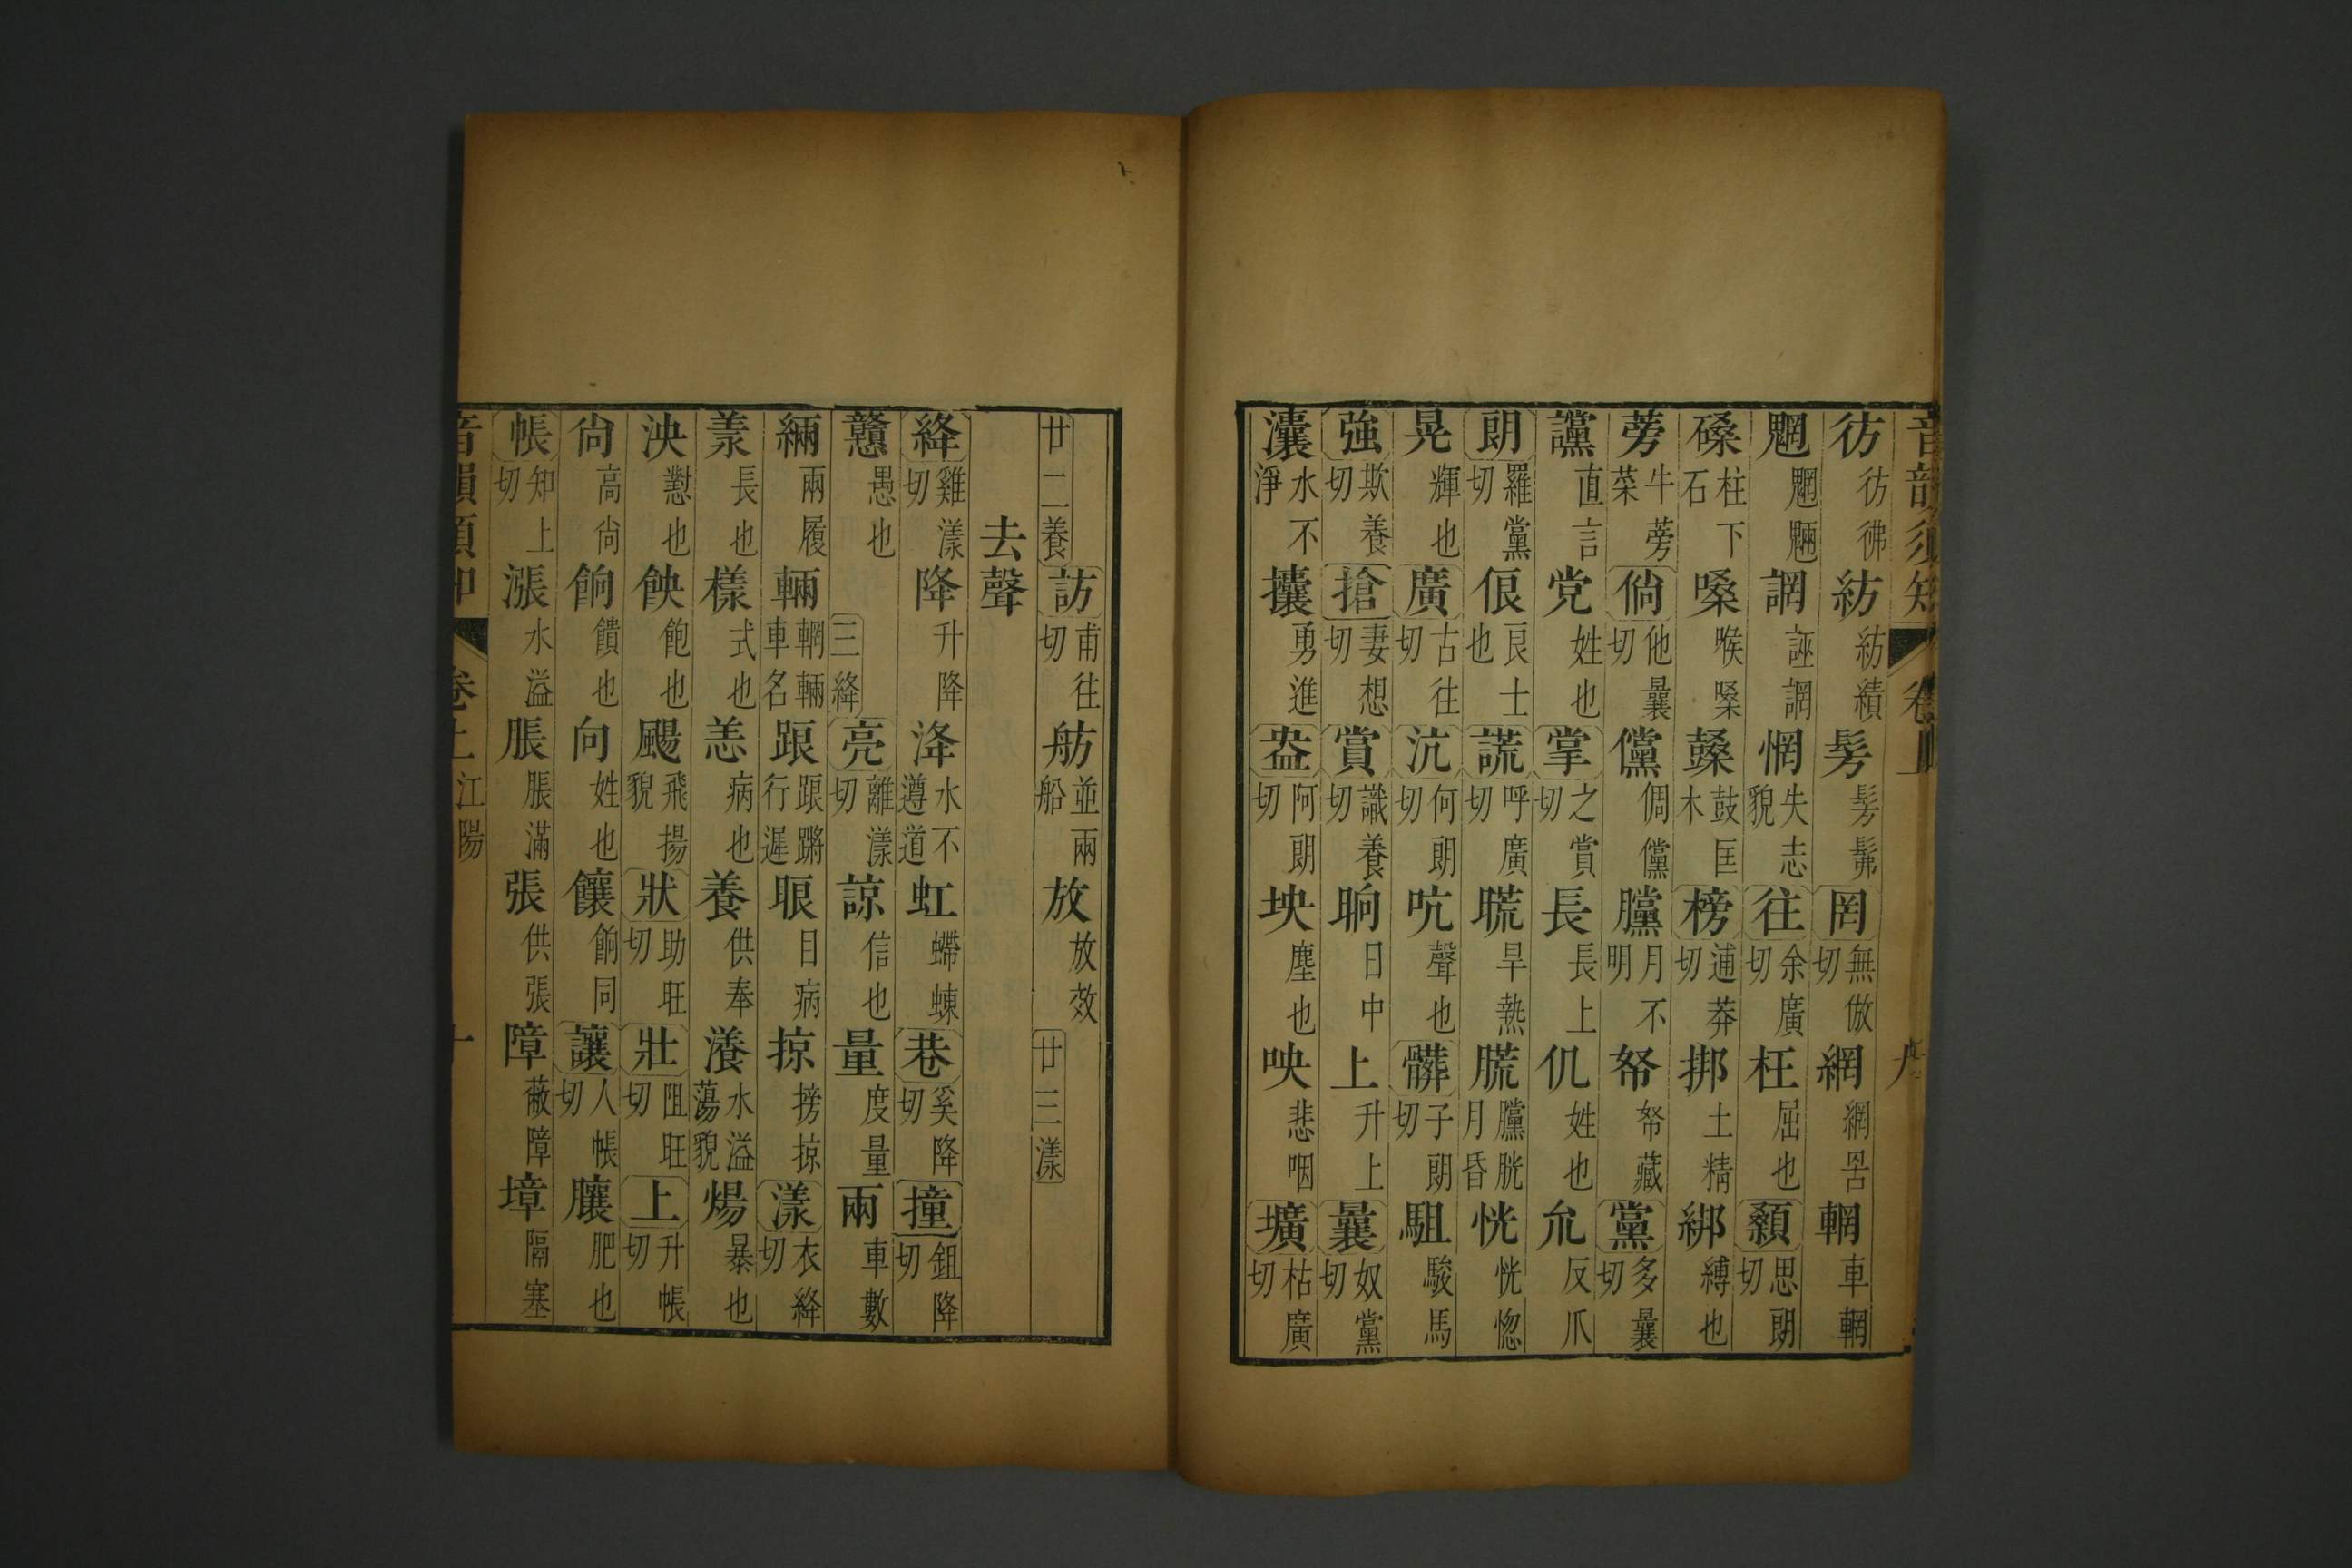 音韻須知 卷上
彷彷彿紡紡績髣髣髴罔無倣切網網罟輞車輞
魍魍魎誷誣誷惘失志貌往余廣切枉屈也顙思朗切
磉柱下石嗓喉嗓鼞鼓匡木榜逋莽切挷土精綁縛也
蒡牛蒡菜倘他曩切儻倜儻矘月不明帑帑藏黨多曩切
讜直言党姓也掌之賞切長長上仉姓也尣反爪
朗羅黨切俍良士也謊呼廣切㬻旱熱朚矘胱月昏恍恍惚
晃輝也廣古往切沆何朗切吭聲也髒子朗切駔駿馬
強欺養切搶妻想切賞識養切晌日中上升上曩奴黨切
灢水不淨攮勇進盎阿朗切坱塵也咉悲咽壙枯廣切
廿二養訪甫往切舫並兩船放放效廿三漾
去聲
絳雞漾切降升降洚水不遵道虹螮蝀巷奚降切撞鉏降切
戇愚也三絳亮離漾切諒信也量度量兩車數
緉兩履輛輞輛車名踉踉蹡行遲眼目病掠搒掠漾衣絳切
羕長也樣式也恙病也養供奉瀁水溢蕩貌煬暴也
泱懟也㑆飽也颺飛揚貌狀助旺切壯阻旺切上升帳切
尙高尙餉饋也向姓也饟餉同讓人帳切䑋肥也
帳知上切漲水溢脹脹滿張供張障蔽障墇隔塞
音韻須知 卷上 江陽 十